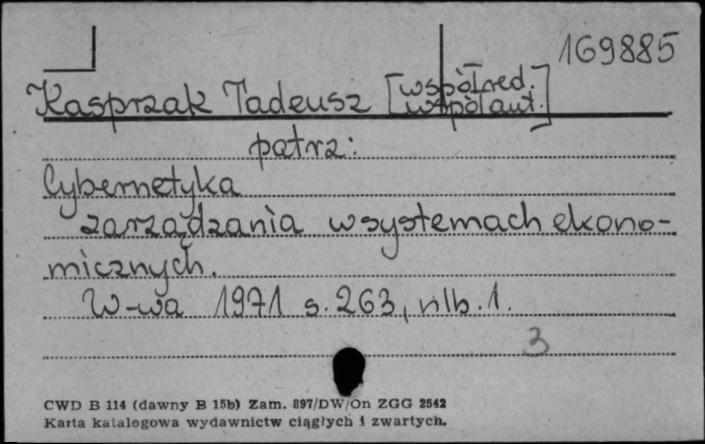 169885
Kasprzak Tadeusz [współred.
współaut.]
patrz:
Cybernetyka
zarządzania w systemach ekono-
micznych.
W-wa 1971 s. 263, nlb. 1.
3
CWD B 114 (dawny B 15b) Zam. 897/DW/On ZGG 2542
Karta katalogowa wydawnictw ciągłych i zwartych.